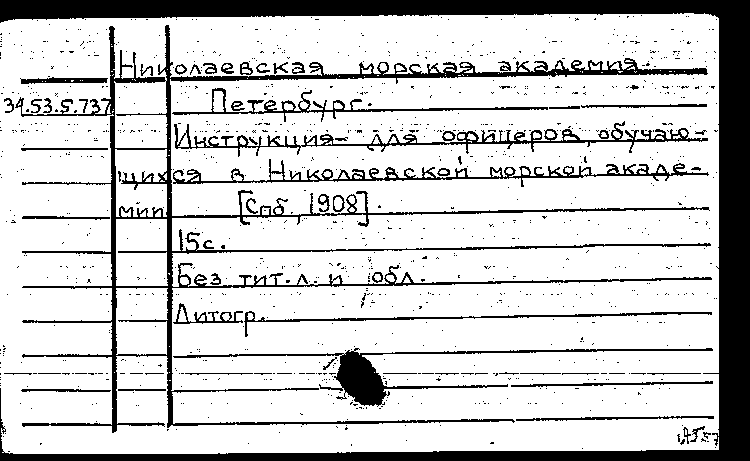 Николаевская морская академия.
34.53.5.737 Петербург.
Инструкция для офицеров, обучаю-
щихся в Николаевской морской акаде-
мии. [Спб, 1908].
15с.
Без тит. л. и обл.
Литогр.